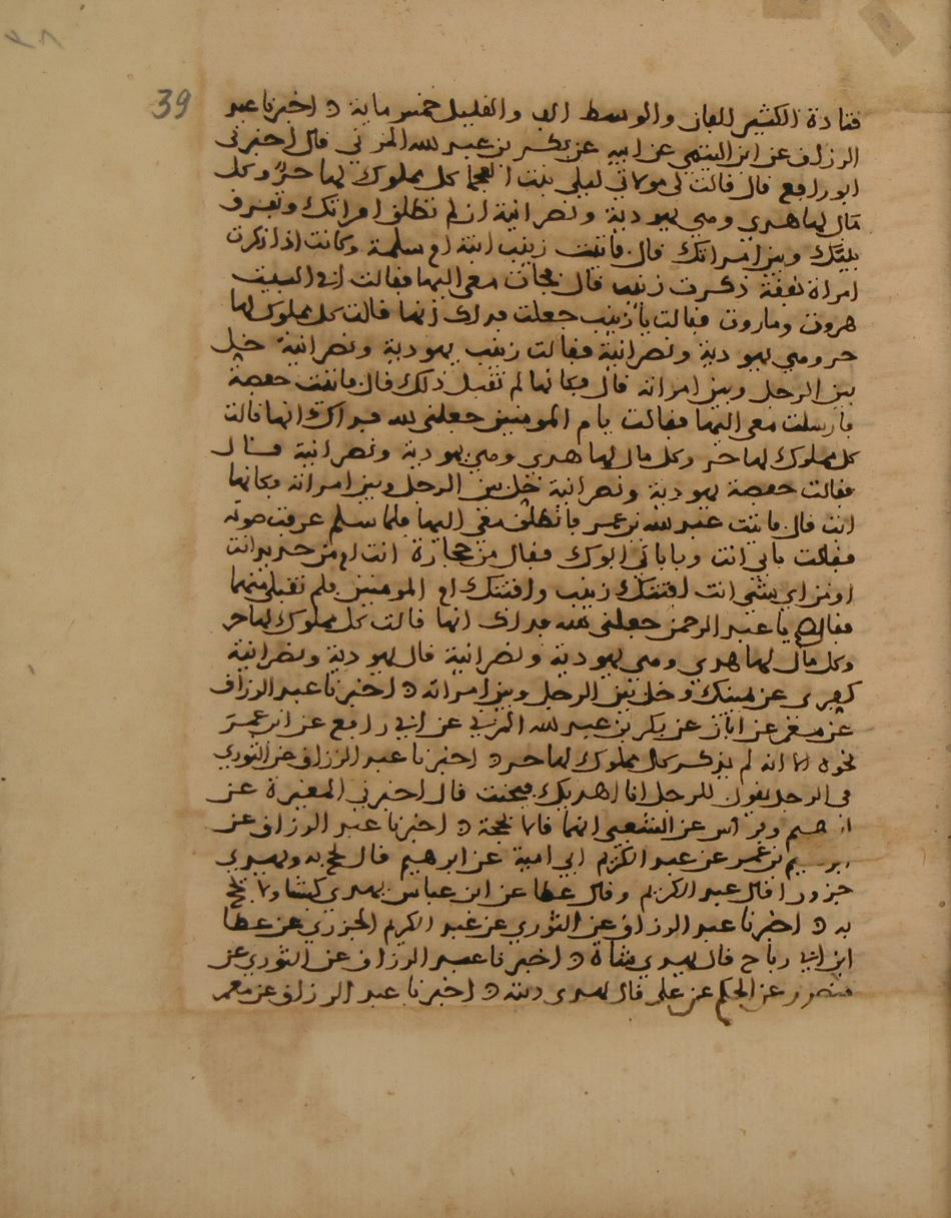 39
قتادة الكثير الفان والوسط الف والقليل خمس ماية ه اخبرنا عبد
الرزاق عن ابن التيمي عن ابيه عن بكر بن عبد الله المزني قال اخبرني
ابو رافع قال قالت لي مولاتي ليلى بنت العجما كل مملوك لها حر وكل
مال لها هدي وهي يهودية ونصرانية ان لم تطلق امراتك وتفرق
بينك وبين امراتك قال فاتيت زينب ابنة ام سلمة وكانت اذا ذكرت
امراة بفقه ذكرت زينب قال فجات معي اليها فقالت افي البيت
هروت وماروت فقالت يا زينب جعلت فداك انها قالت كل مملوك لها
حر وهي يهودية ونصرانية فقالت زينب يهودية ونصرانية خل
بين الرجل وبين امراته قال فكانها لم تقبل ذلك قال فاتيت حفصة
فارسلت معي اليها فقالت يام المومنين جعلني الله فداك انها قالت
كل مملوك لها حر وكل مال لها هدي وهي يهودية ونصرانية قال
فقالت حفصة يهودية ونصرانية خل بين الرجل وبين امراته فكانها
ابت قال فاتيت عبد الله بن عمر فانطلق معي اليها فلما سلم عرفت صوته
فقالت بابي انت وباباي ابوك فقال من حجارة انت ام من حديد انت
او من اي شي انت افتتك زينب وافتتك ام المومنين فلم تقبلي منهما
فقالت يا عبد الرحمن جعلني الله فداك انها قالت كل مملوك لها حر
وكل مال لها هدي وهي يهودية ونصرانية قال يهودية ونصرانية
كفري عن يمينك وخل بين الرجل وبين امراته ه اخبرنا عبد الرزاق
عن معمر عن ابان عن بكر بن عبد الله المزني عن ابي رافع عن ابن عمر
نحوه الا انه لم يذكر كل مملوك لها حر ه اخبرنا عبد الرزاق عن الثوري
في الرجل يقول للرجل انا اهديك فيحنث قال اخبرني المغيرة عن
ابرهيم وفراس عن الشعبي انهما قالا يحجه ه اخبرنا عبد الرزاق عن
ابرهيم بن عمر عن عبد الكريم ابي امية عن ابرهيم قال يحج به ويهدي
جزورا قال عبد الكريم وقال عطا عن ابن عباس يهدي كبشا ولا يحج
به ه اخبرنا عبد الرزاق عن الثوري عن عبد الكريم الجزري عن عطا
ابن ابي رباح قال يهدي شاة ه اخبرنا عبد الرزاق عن الثوري عن
منصور عن الحكم عن علي قال يهدي دينه ه اخبرنا عبد الرزاق عن معمر